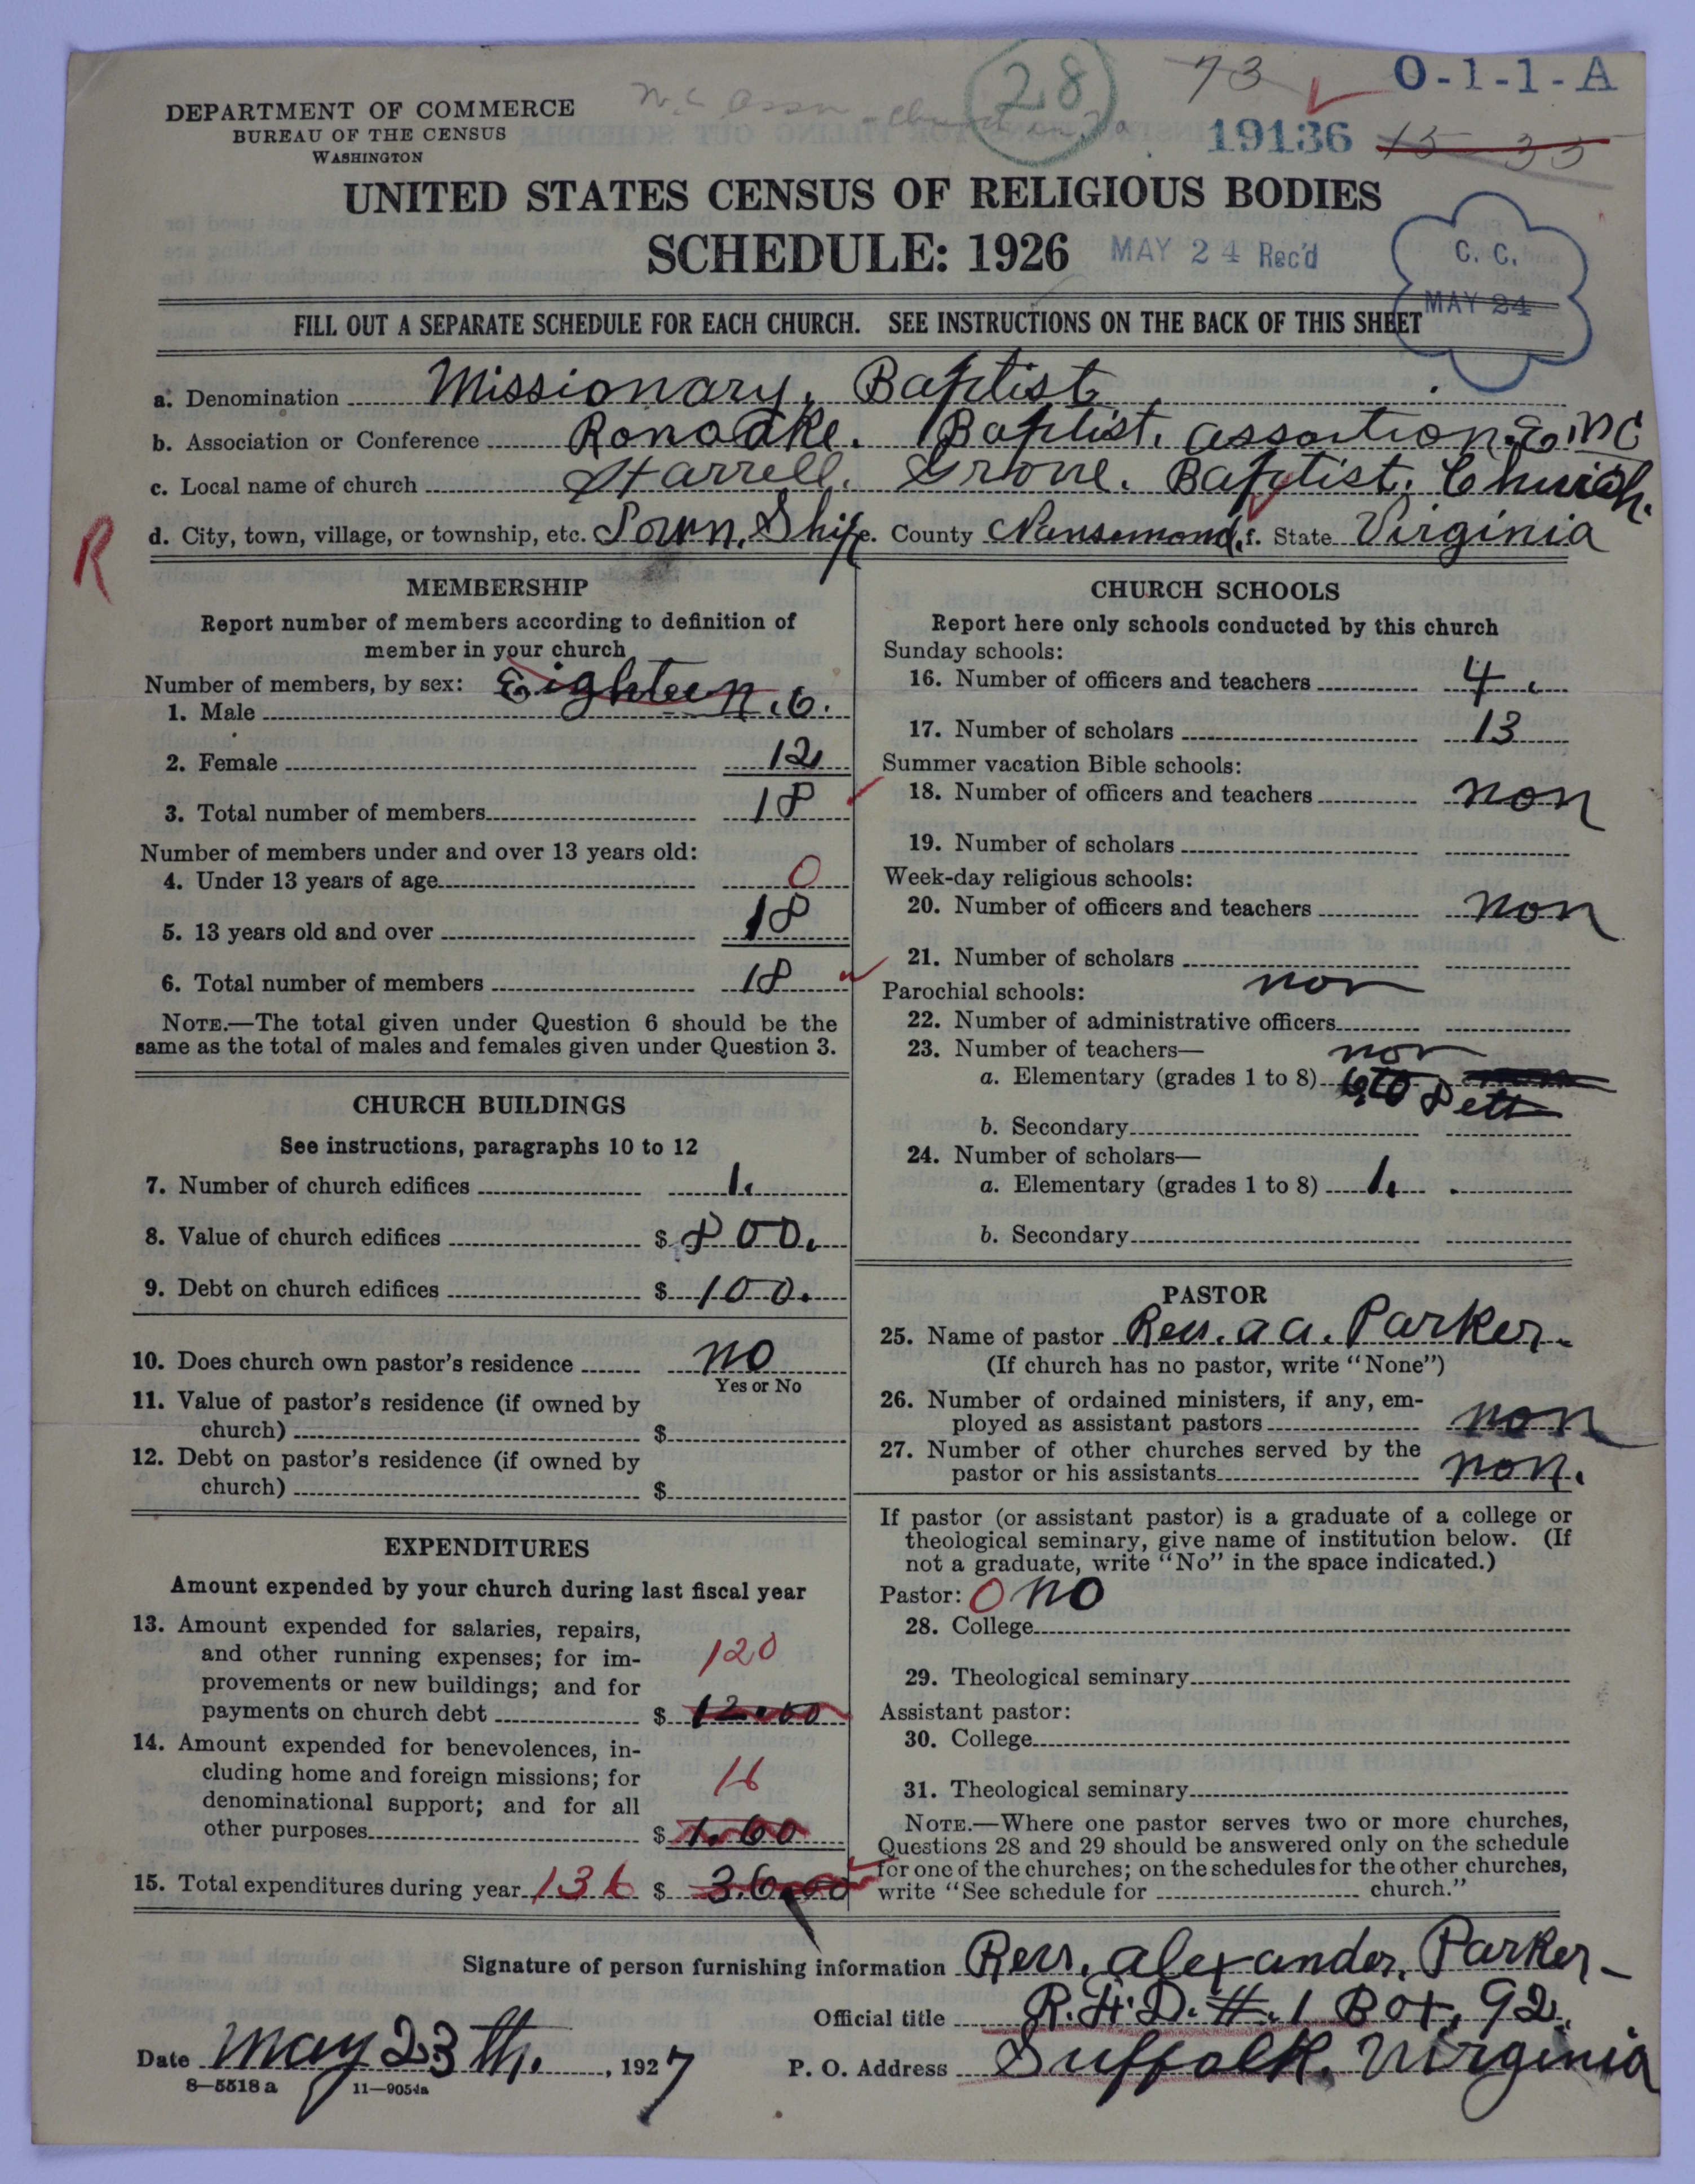 28
73
O-1-1-A
DEPARTMENT OF COMMERCE
BUREAU OF THE CENSUS
WASHINGTON
19136
15 33
UNITED STATES CENSUS OF RELIGIOUS BODIES
SCHEDULE: 1926
MAY 24 Rec'd
C. C.
MAY 24
FILL OUT A SEPARATE SCHEDULE FOR EACH CHURCH. SEE INSTRUCTIONS ON THE BACK OF THIS SHEET
a. Denomination Missionary, Baptist
b. Association or Conference Ronoake. Baptist. assortion. E. NC
c. Local name of church Harrell. Grove. Baptist. Church.
d. City, town, village, or township, etc. Town, Ship e. County Nansemond, f. State Virginia
R
MEMBERSHIP
Report number of members according to definition of
member in your church
Number of members, by sex: Eighteen
1. Male 6.
2. Female 12
3. Total number of members 18
Number of members under and over 13 years old:
4. Under 13 years of age 0
5. 13 years old and over 18
6. Total number of members 18
NOTE.—The total given under Question 6 should be the
same as the total of males and females given under Question 3.
CHURCH BUILDINGS
See instructions, paragraphs 10 to 12
7. Number of church edifices 1.
8. Value of church edifices $ 800.
9. Debt on church edifices $ 100.
10. Does church own pastor's residence no
Yes or No
11. Value of pastor's residence (if owned by
church) $
12. Debt on pastor's residence (if owned by
church) $
EXPENDITURES
Amount expended by your church during last fiscal year
13. Amount expended for salaries, repairs,
and other running expenses; for im-
provements or new buildings; and for
payments on church debt $ 12.00
120
14. Amount expended for benevolences, in-
cluding home and foreign missions; for
denominational support; and for all
other purposes $ 1.60
16
15. Total expenditures during year 136 $ 36.00
CHURCH SCHOOLS
Report here only schools conducted by this church
Sunday schools:
16. Number of officers and teachers 4.
17. Number of scholars 13
Summer vacation Bible schools:
18. Number of officers and teachers non
19. Number of scholars
Week-day religious schools:
20. Number of officers and teachers non
21. Number of scholars
Parochial schools: non
22. Number of administrative officers
23. Number of teachers— non
a. Elementary (grades 1 to 8)
b. Secondary
24. Number of scholars—
a. Elementary (grades 1 to 8) 1.
b. Secondary
PASTOR
25. Name of pastor Rev. a a. Parker
(If church has no pastor, write "None")
26. Number of ordained ministers, if any, em-
ployed as assistant pastors non
27. Number of other churches served by the
pastor or his assistants non.
If pastor (or assistant pastor) is a graduate of a college or
theological seminary, give name of institution below. (If
not a graduate, write "No" in the space indicated.)
Pastor: 0 no
28. College
29. Theological seminary
Assistant pastor:
30. College
31. Theological seminary
NOTE.—Where one pastor serves two or more churches,
Questions 28 and 29 should be answered only on the schedule
for one of the churches; on the schedules for the other churches,
write "See schedule for church."
Signature of person furnishing information Rev. alexander. Parker
Official title R. F. D. #. 1 Box. 92.
Date may 23 th. , 1927 P. O. Address Suffolk. Virginia
8—5518 a 11—9054a